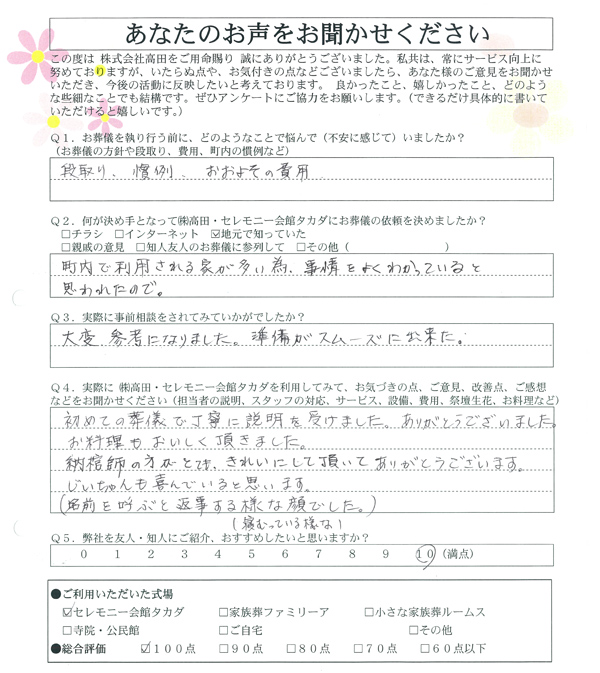 あなたのお声をお聞かせください
この度は 株式会社高田をご用命賜り 誠にありがとうございました。私共は、常にサービス向上に
努めておりますが、いたらぬ点や、お気付きの点などございましたら、あなた様のご意見をお聞かせ
いただき、今後の活動に反映したいと考えております。 良かったこと、嬉しかったこと、どのよう
な些細なことでも結構です。ぜひアンケートにご協力をお願いします。（できるだけ具体的に書いて
いただけると嬉しいです。）
Ｑ１．お葬儀を執り行う前に、どのようなことで悩んで（不安に感じて）いましたか？
（お葬儀の方針や段取り、費用、町内の慣例など）
段取り、慣例、おおよその費用
Ｑ２．何が決め手となって㈱高田・セレモニー会館タカダにお葬儀の依頼を決めましたか？
□チラシ □インターネット ☑地元で知っていた
□親戚の意見 □知人友人のお葬儀に参列して □その他（ ）
町内で利用される家が多い為、事情をよくわかっていると
思われたので。
Ｑ３．実際に事前相談をされてみていかがでしたか？
大変 参考になりました。準備がスムーズに出来た。
Ｑ４．実際に ㈱高田・セレモニー会館タカダを利用してみて、お気づきの点、ご意見、改善点、ご感想
などをお聞かせください（担当者の説明、スタッフの対応、サービス、設備、費用、祭壇生花、お料理など）
初めての葬儀で丁寧に説明を受けました。ありがとうございました。
お料理もおいしく頂きました。
納棺師の方がとても、きれいにして頂いてありがとうございます。
じいちゃんも喜んでいると思います。
（名前を呼ぶと返事する様な顔でした。）
（寝むっている様な）
Ｑ５．弊社を友人・知人にご紹介、おすすめしたいと思いますか？
０ １ ２ ３ ４ ５ ６ ７ ８ ９ １０（満点）
●ご利用いただいた式場
☑セレモニー会館タカダ □家族葬ファミリーア □小さな家族葬ルームス
□寺院・公民館 □ご自宅 □その他
●総合評価 ☑１００点 □９０点 □８０点 □７０点 □６０点以下